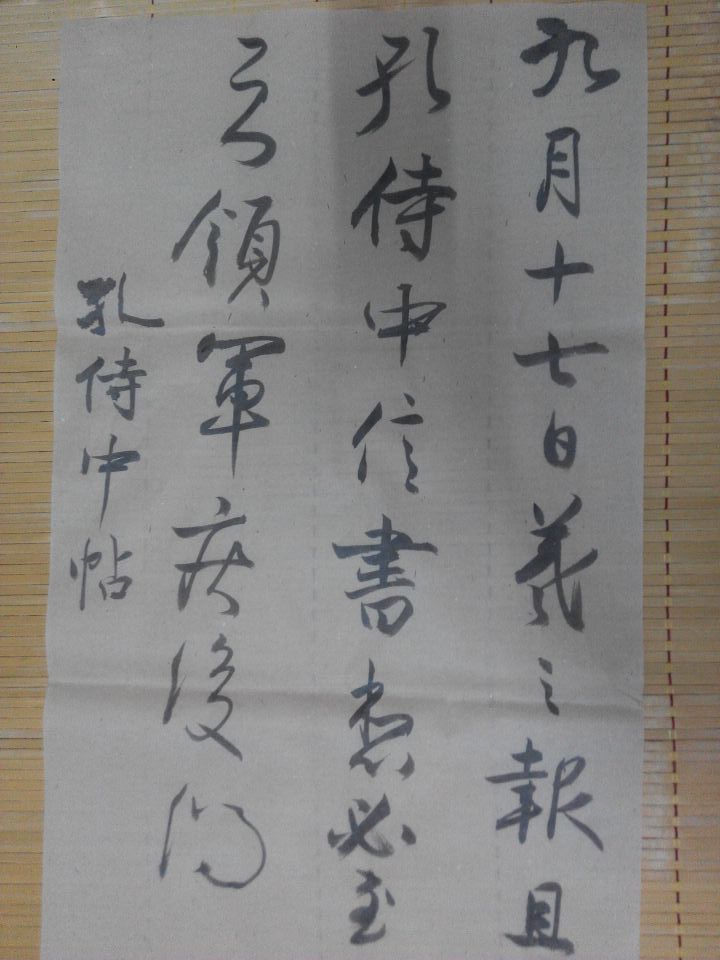 九月十七日羲之報且
孔侍中信書想必至
不知領軍疾後問
孔侍中帖